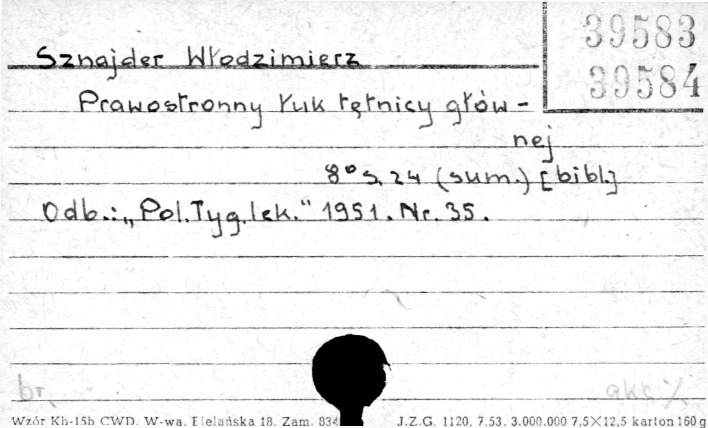 39583
39584
Sznajder Włodzimierz
Prawostronny łuk tętnicy głów-
nej
8° s. 24 (sum.) [bibl.]
Odb.: „Pol.Tyg.lek." 1951. Nr. 35.
br.
Wzór Kb-15b CWD. W-wa, Bielańska 18. Zam. 834 J.Z.G. 1120. 7.53. 3.000.000 7,5×12,5 karton 160 g